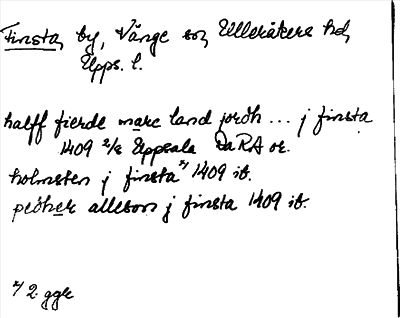 Finsta, by, Vänge sn, Ulleråkers hd,
Upps. l.
halff fierde marc land jordh ... j finsta
1409 2/2 Uppsala DaRA or.
holmsten j finsta x) 1409 ib.
pedher allesson j finsta 1409 ib.
x) 2 ggr